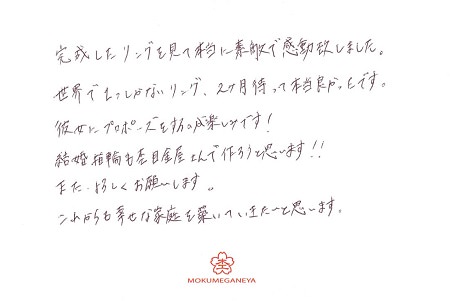 完成したリングを見て本当に素敵で感動致しました。
世界で1つしかないリング、2ヶ月待って本当良かったです。
彼女にプロポーズをするのが楽しみです!
結婚指輪も杢目金屋さんで作ろうと思います!!
また、よろしくお願いします。
これからも幸せな家庭を築いていきたいと思います。
MOKUMEGANEYA